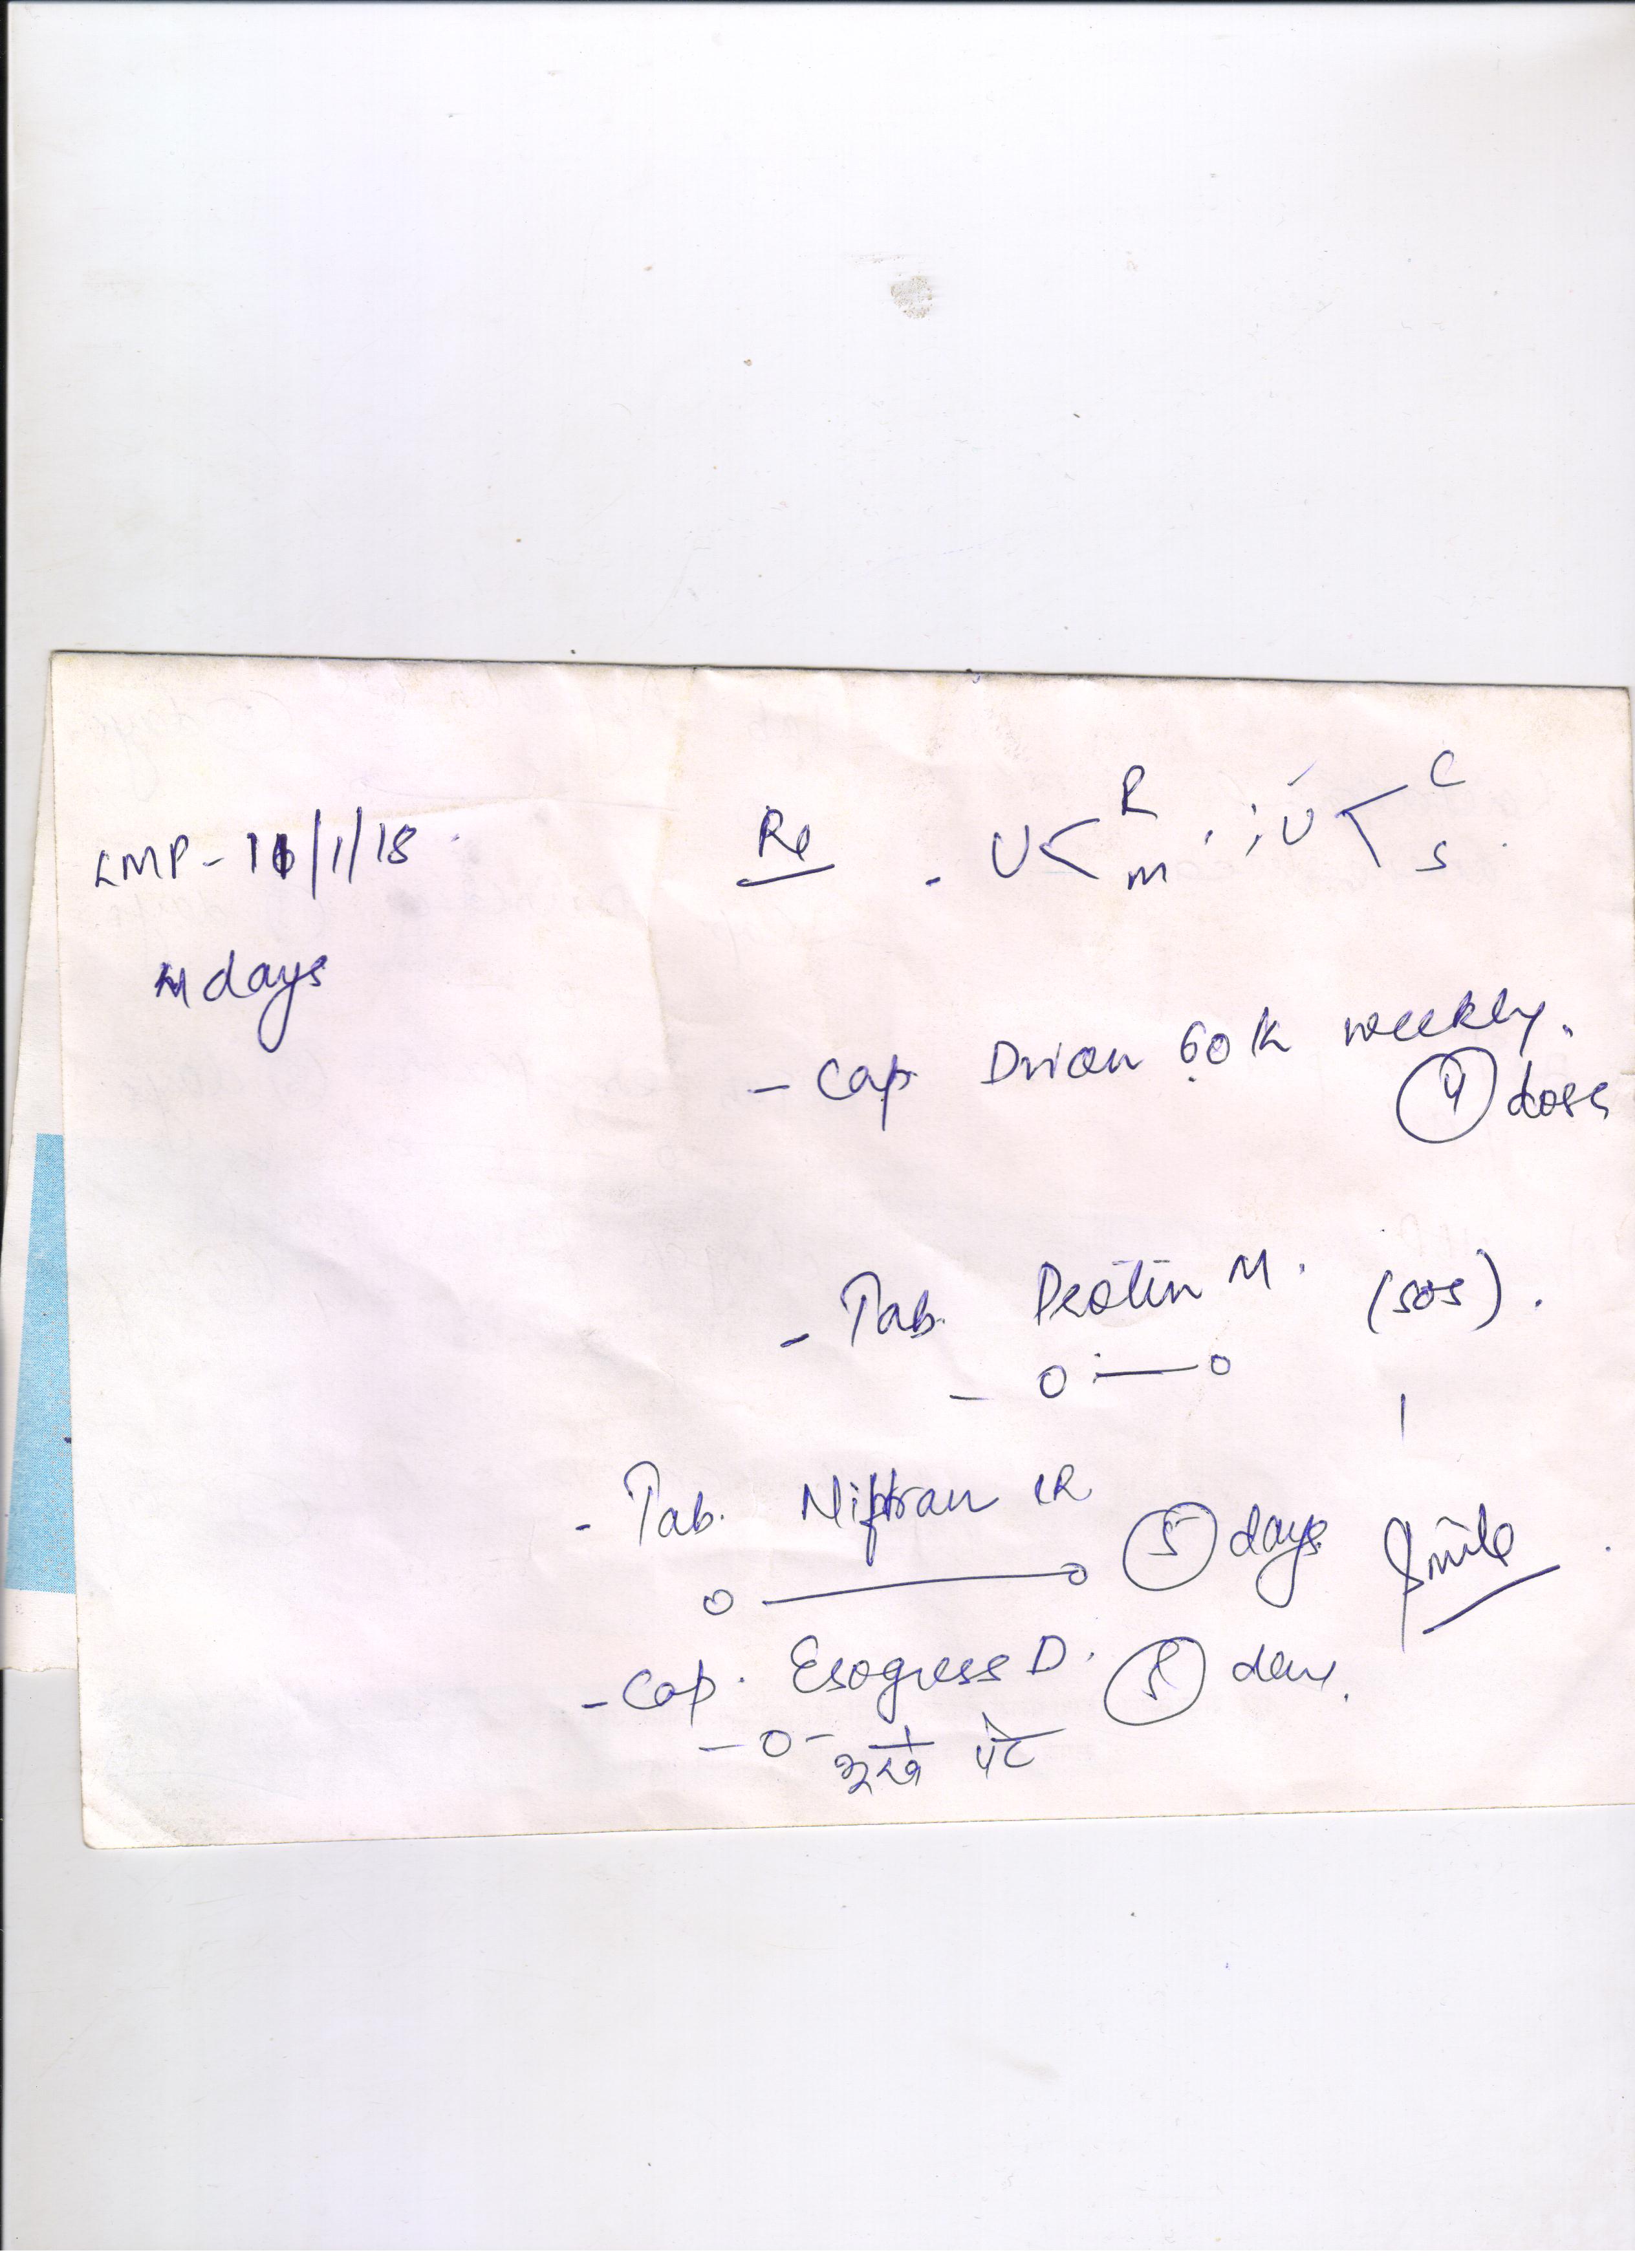 LMP - 11/1/18
4 days
Rx
- U < R M . ; U < C S
- Cap Drian 60 K weekly.
4 doses
- Tab. M. (SOS).
- 0 - 0
- Tab. Niftran 5 days
0 — 0
- Cap. Esogress D. 5 days.
- 0 - खाली पेट